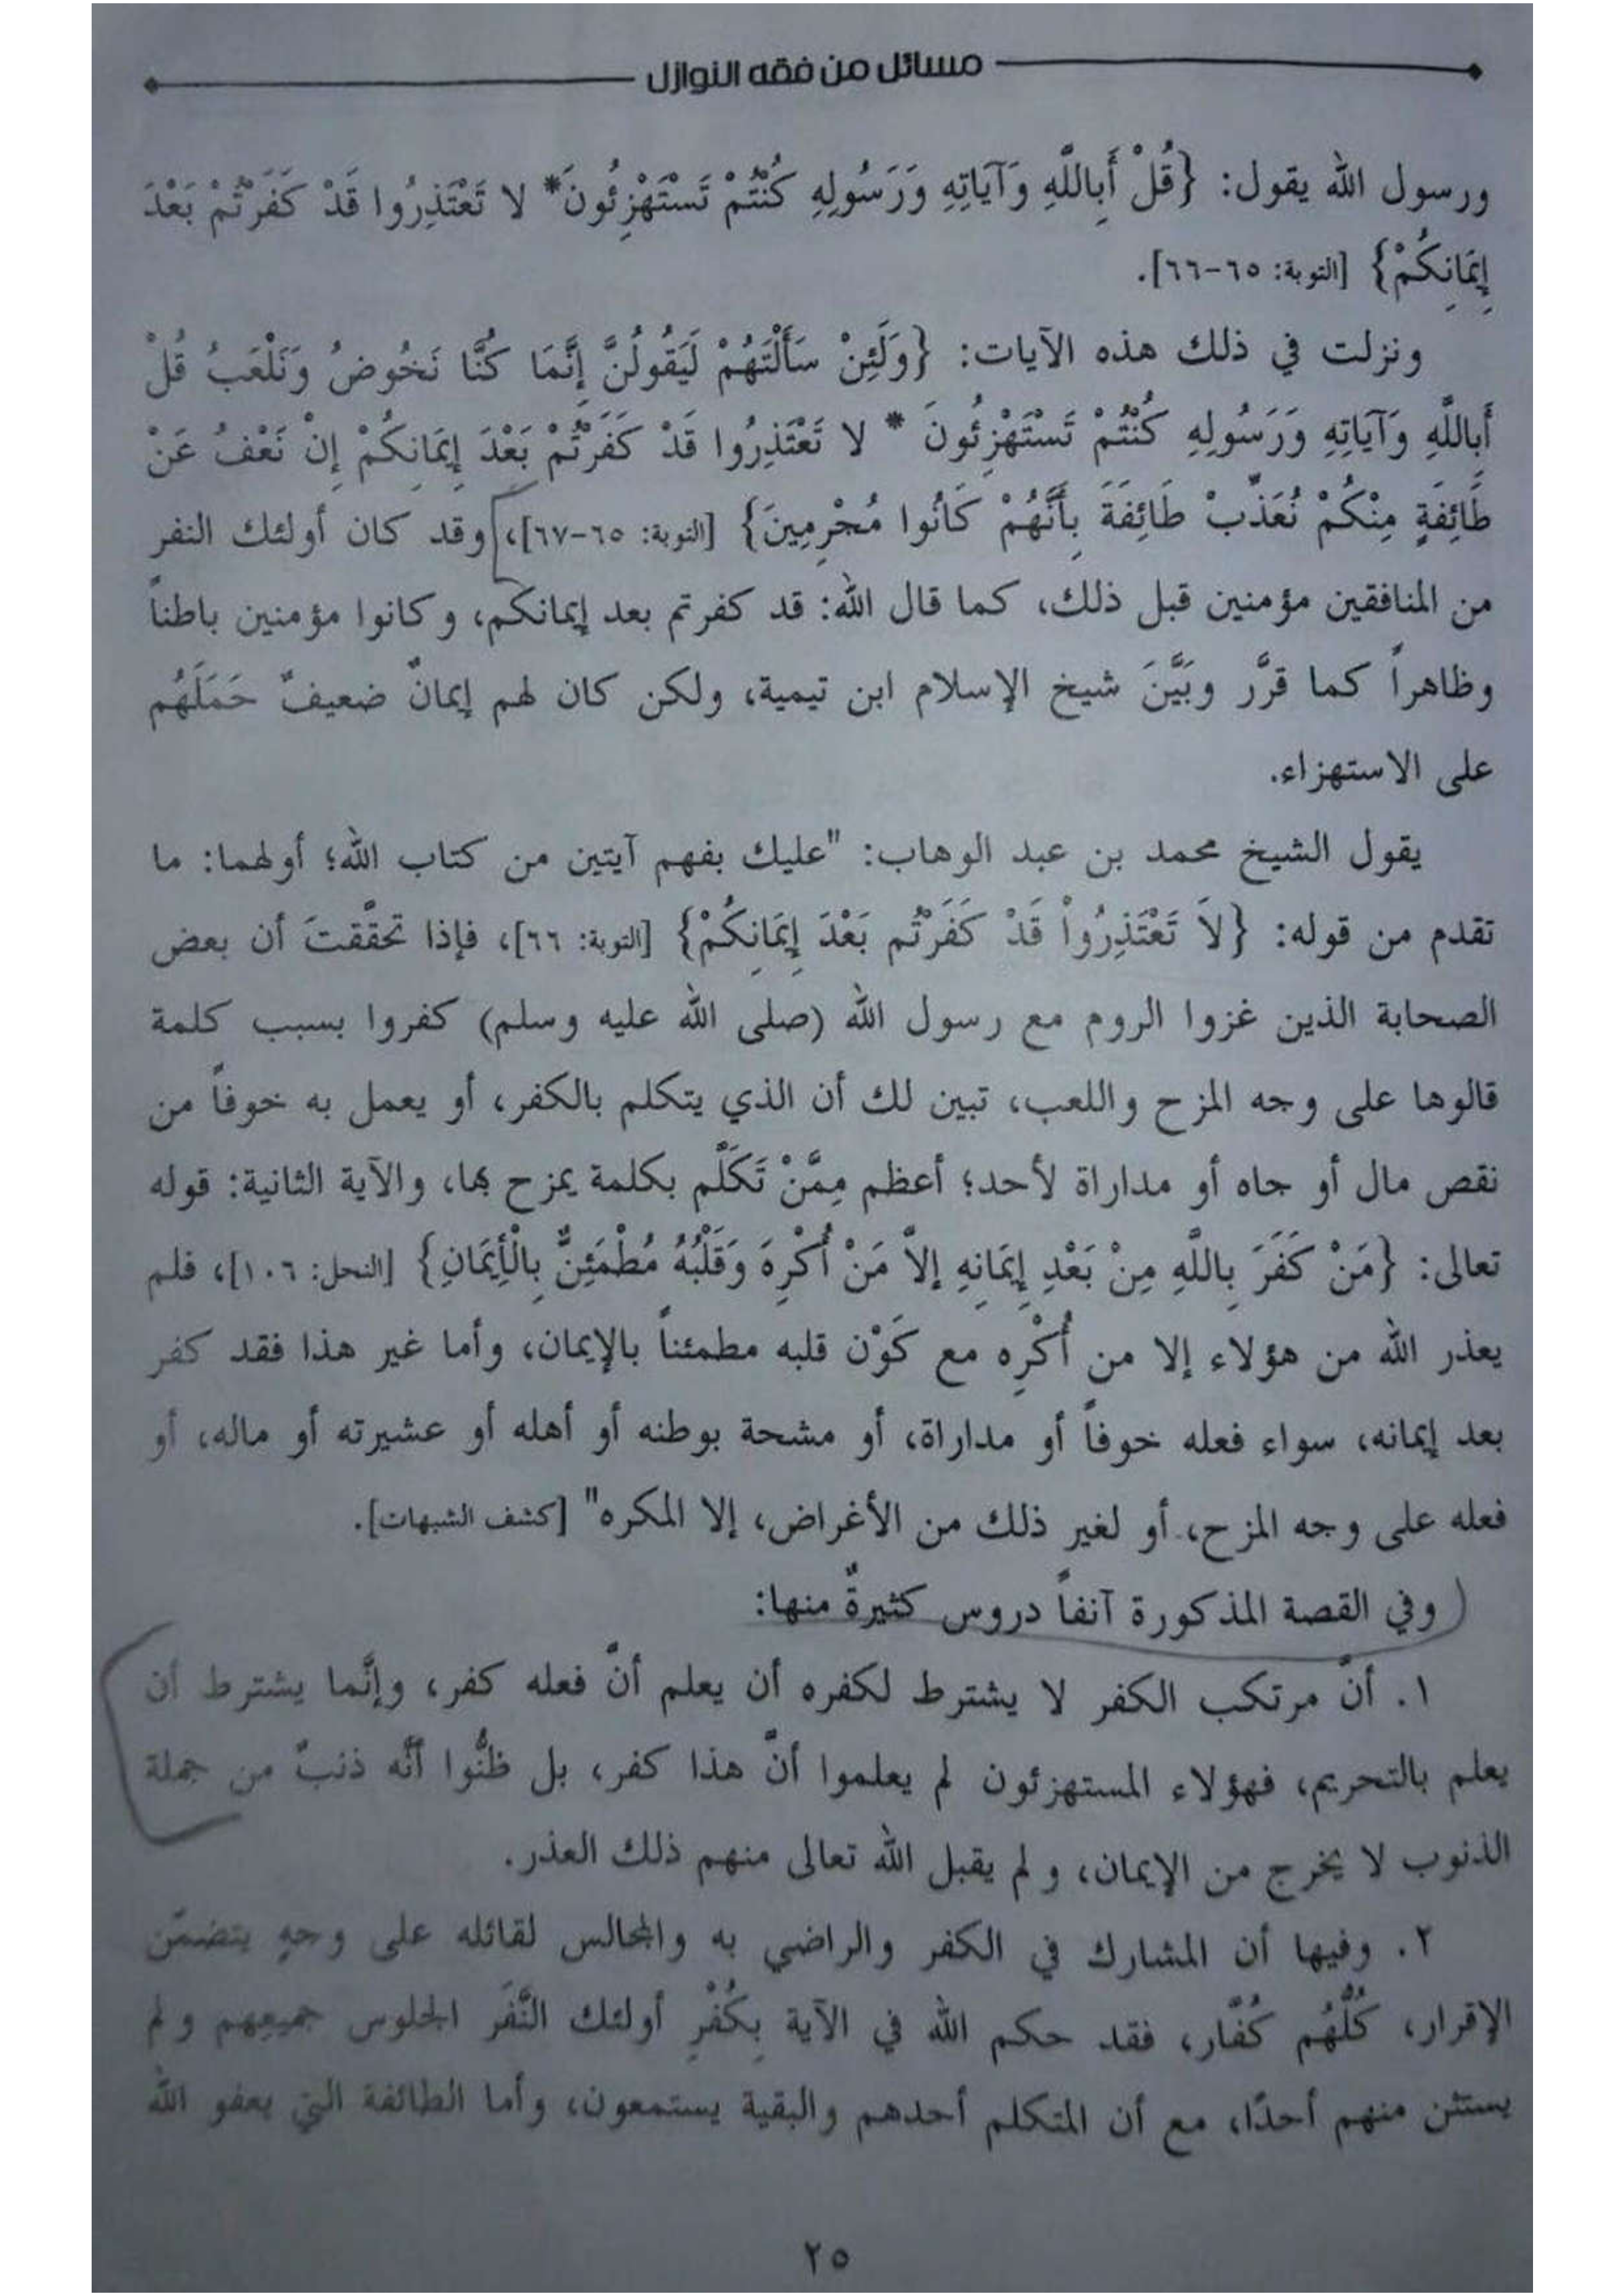 مسائل من فقه النوازل
ورسول الله يقول: {قُلْ أَبِاللَّهِ وَآيَاتِهِ وَرَسُولِهِ كُنْتُمْ تَسْتَهْزِئُونَ* لا تَعْتَذِرُوا قَدْ كَفَرْتُمْ بَعْدَ
إِيمَانِكُمْ} [التوبة: ٦٥-٦٦].
ونزلت في ذلك هذه الآيات: {وَلَئِنْ سَأَلْتَهُمْ لَيَقُولُنَّ إِنَّمَا كُنَّا نَخُوضُ وَنَلْعَبُ قُلْ
أَبِاللَّهِ وَآيَاتِهِ وَرَسُولِهِ كُنْتُمْ تَسْتَهْزِئُونَ * لا تَعْتَذِرُوا قَدْ كَفَرْتُمْ بَعْدَ إِيمَانِكُمْ إِنْ نَعْفُ عَنْ
طَائِفَةٍ مِنْكُمْ نُعَذِّبْ طَائِفَةً بِأَنَّهُمْ كَانُوا مُجْرِمِينَ} [التوبة: ٦٥-٦٧]، وقد كان أولئك النفر
من المنافقين مؤمنين قبل ذلك، كما قال الله: قد كفرتم بعد إيمانكم، وكانوا مؤمنين باطناً
وظاهراً كما قرَّر وبَيَّنَ شيخ الإسلام ابن تيمية، ولكن كان لهم إيمانٌ ضعيفٌ حَمَلَهُم
على الاستهزاء.
يقول الشيخ محمد بن عبد الوهاب: "عليك بفهم آيتين من كتاب الله؛ أولهما: ما
تقدم من قوله: {لاَ تَعْتَذِرُواْ قَدْ كَفَرْتُم بَعْدَ إِيمَانِكُمْ} [التوبة: ٦٦]، فإذا تحقَّقتَ أن بعض
الصحابة الذين غزوا الروم مع رسول الله (صلى الله عليه وسلم) كفروا بسبب كلمة
قالوها على وجه المزح واللعب، تبين لك أن الذي يتكلم بالكفر، أو يعمل به خوفاً من
نقص مال أو جاه أو مداراة لأحد؛ أعظم مِمَّنْ تَكَلَّم بكلمة يمزح بها، والآية الثانية: قوله
تعالى: {مَنْ كَفَرَ بِاللَّهِ مِنْ بَعْدِ إِيمَانِهِ إلاَّ مَنْ أُكْرِهَ وَقَلْبُهُ مُطْمَئِنٌّ بِالْأِيمَانِ} [النحل: ١٠٦]، فلم
يعذر الله من هؤلاء إلا من أُكْرِه مع كَوْن قلبه مطمئناً بالإيمان، وأما غير هذا فقد كفر
بعد إيمانه، سواء فعله خوفاً أو مداراة، أو مشحة بوطنه أو أهله أو عشيرته أو ماله، أو
فعله على وجه المزح، أو لغير ذلك من الأغراض، إلا المكره" [كشف الشبهات].
وفي القصة المذكورة آنفاً دروس كثيرةٌ منها:
١. أنَّ مرتكب الكفر لا يشترط لكفره أن يعلم أنَّ فعله كفر، وإنَّما يشترط أن
يعلم بالتحريم، فهؤلاء المستهزئون لم يعلموا أنَّ هذا كفر، بل ظنُّوا أنَّه ذنبٌ من جملة
الذنوب لا يخرج من الإيمان، ولم يقبل الله تعالى منهم ذلك العذر.
٢. وفيها أن المشارك في الكفر والراضي به والمجالس لقائله على وجهٍ يتضمَّن
الإقرار، كُلُّهُم كُفَّار، فقد حكم الله في الآية بِكُفْرِ أولئك النَّفَر الجلوس جميعِهم ولم
يستثن منهم أحدًا، مع أن المتكلم أحدهم والبقية يستمعون، وأما الطائفة التي يعفو الله
٢٥